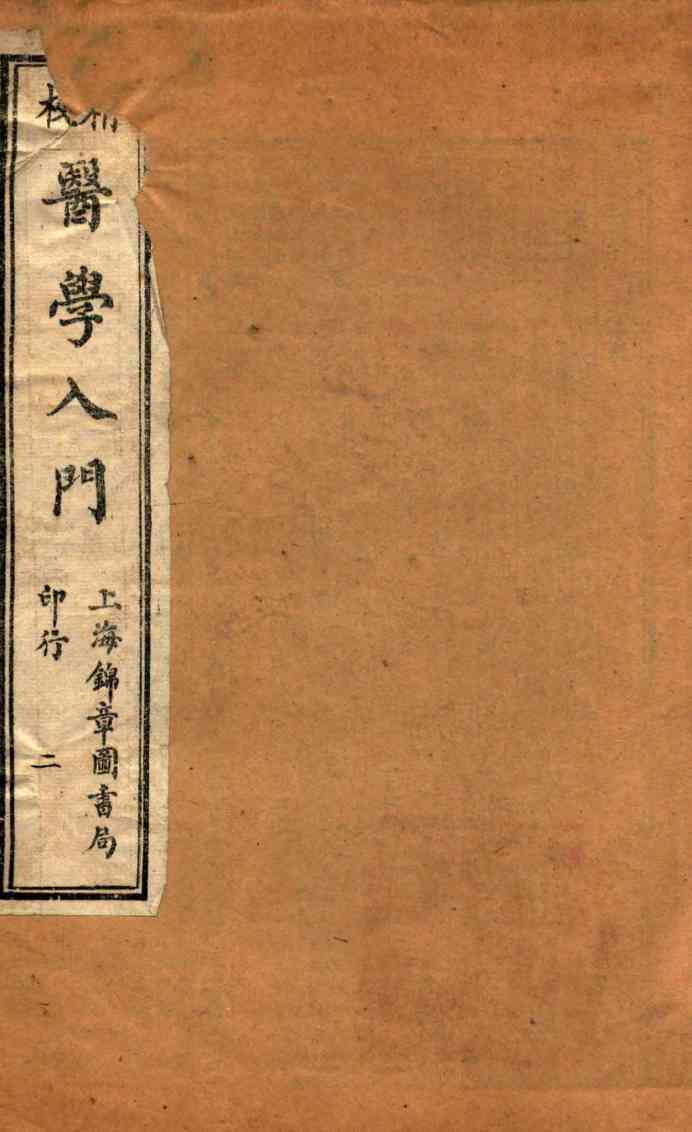 精校
醫學入門
上海錦章圖書局
印行
二